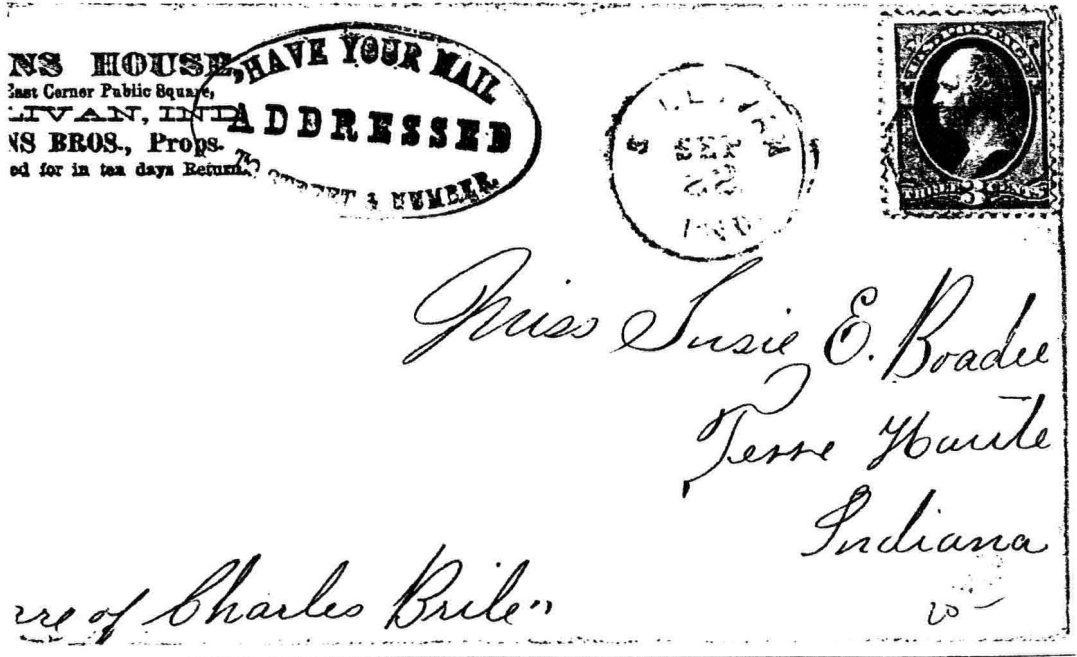 NS HOUSE,
East Corner Public Square,
LIVAN, IND
NS BROS., Props.
ed for in ten days Return
HAVE YOUR MAIL
ADDRESSED
TO STREET & NUMBER.
IND
THREE 3 CENTS
Miss Susie E. Boadee
Terre Haute
Indiana
re of Charles Brile"
20